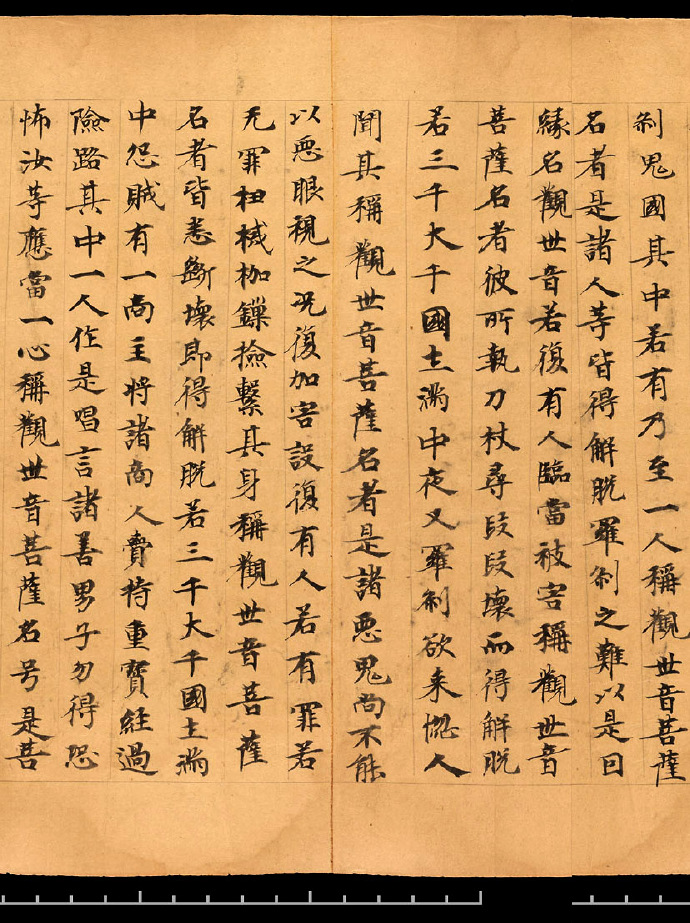 刹鬼國其中若有乃至一人稱觀世音菩薩
名者是諸人等皆得解脱羅刹之難以是因
緣名觀世音若復有人臨當被害稱觀世音
菩薩名者彼所執刀杖尋段段壞而得解脱
若三千大千國土滿中夜叉羅刹欲来惱人
聞其稱觀世音菩薩名者是諸惡鬼尚不能
以惡眼視之況復加害設復有人若有罪若
无罪杻械枷鏁撿繫其身稱觀世音菩薩
名者皆悉斷壞即得解脱若三千大千國土滿
中怨賊有一啇主將諸啇人賷持重寶經過
險路其中一人作是唱言諸善男子勿得恐
怖汝等應當一心稱觀世音菩薩名号是菩